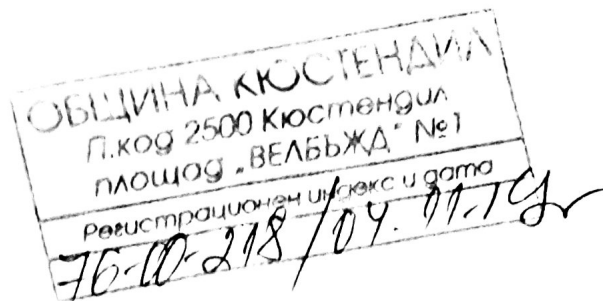 ОБЩИНА КЮСТЕНДИЛ
П.код 2500 Кюстендил
площад „ВЕЛБЪЖД“ №1
Регистрационен индекс и дата
76-00-218/04.11.19г